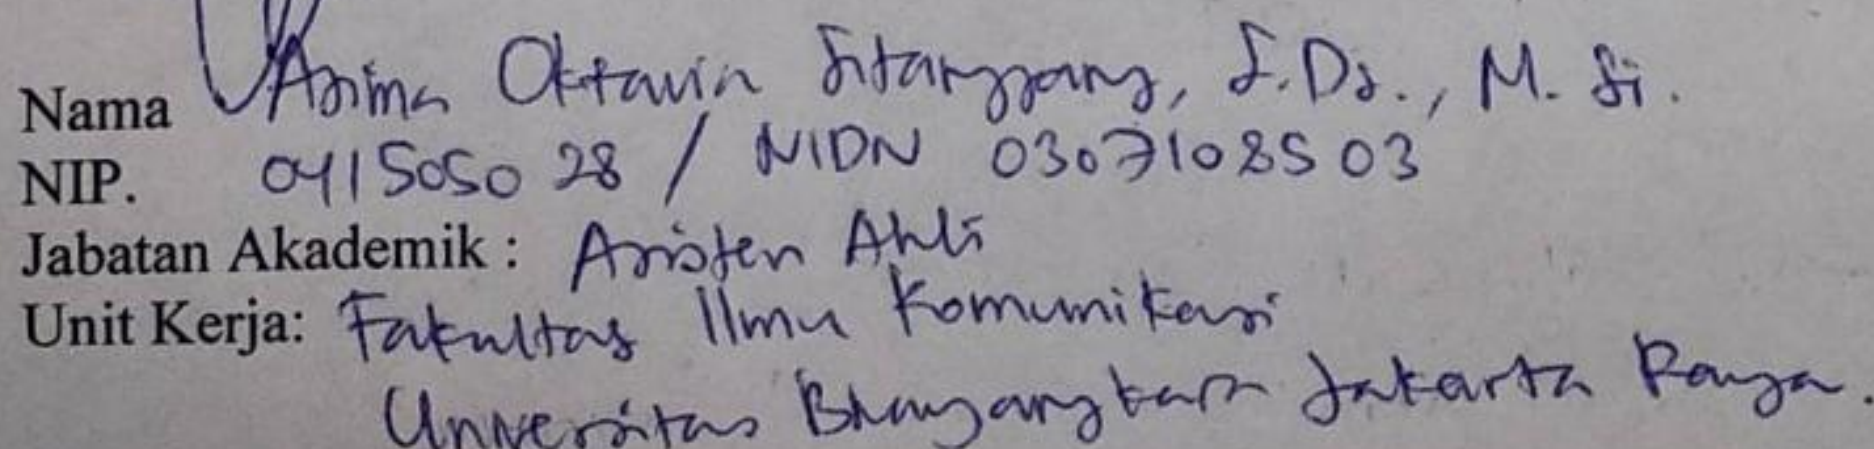 Nama Asima Oktavia Sitanggang, S.Ds., M.Si.
NIP. 041505028 / NIDN 0307108503
Jabatan Akademik : Asisten Ahli
Unit Kerja: Fakultas Ilmu Komunikasi
Universitas Bhayangkara Jakarta Raya.